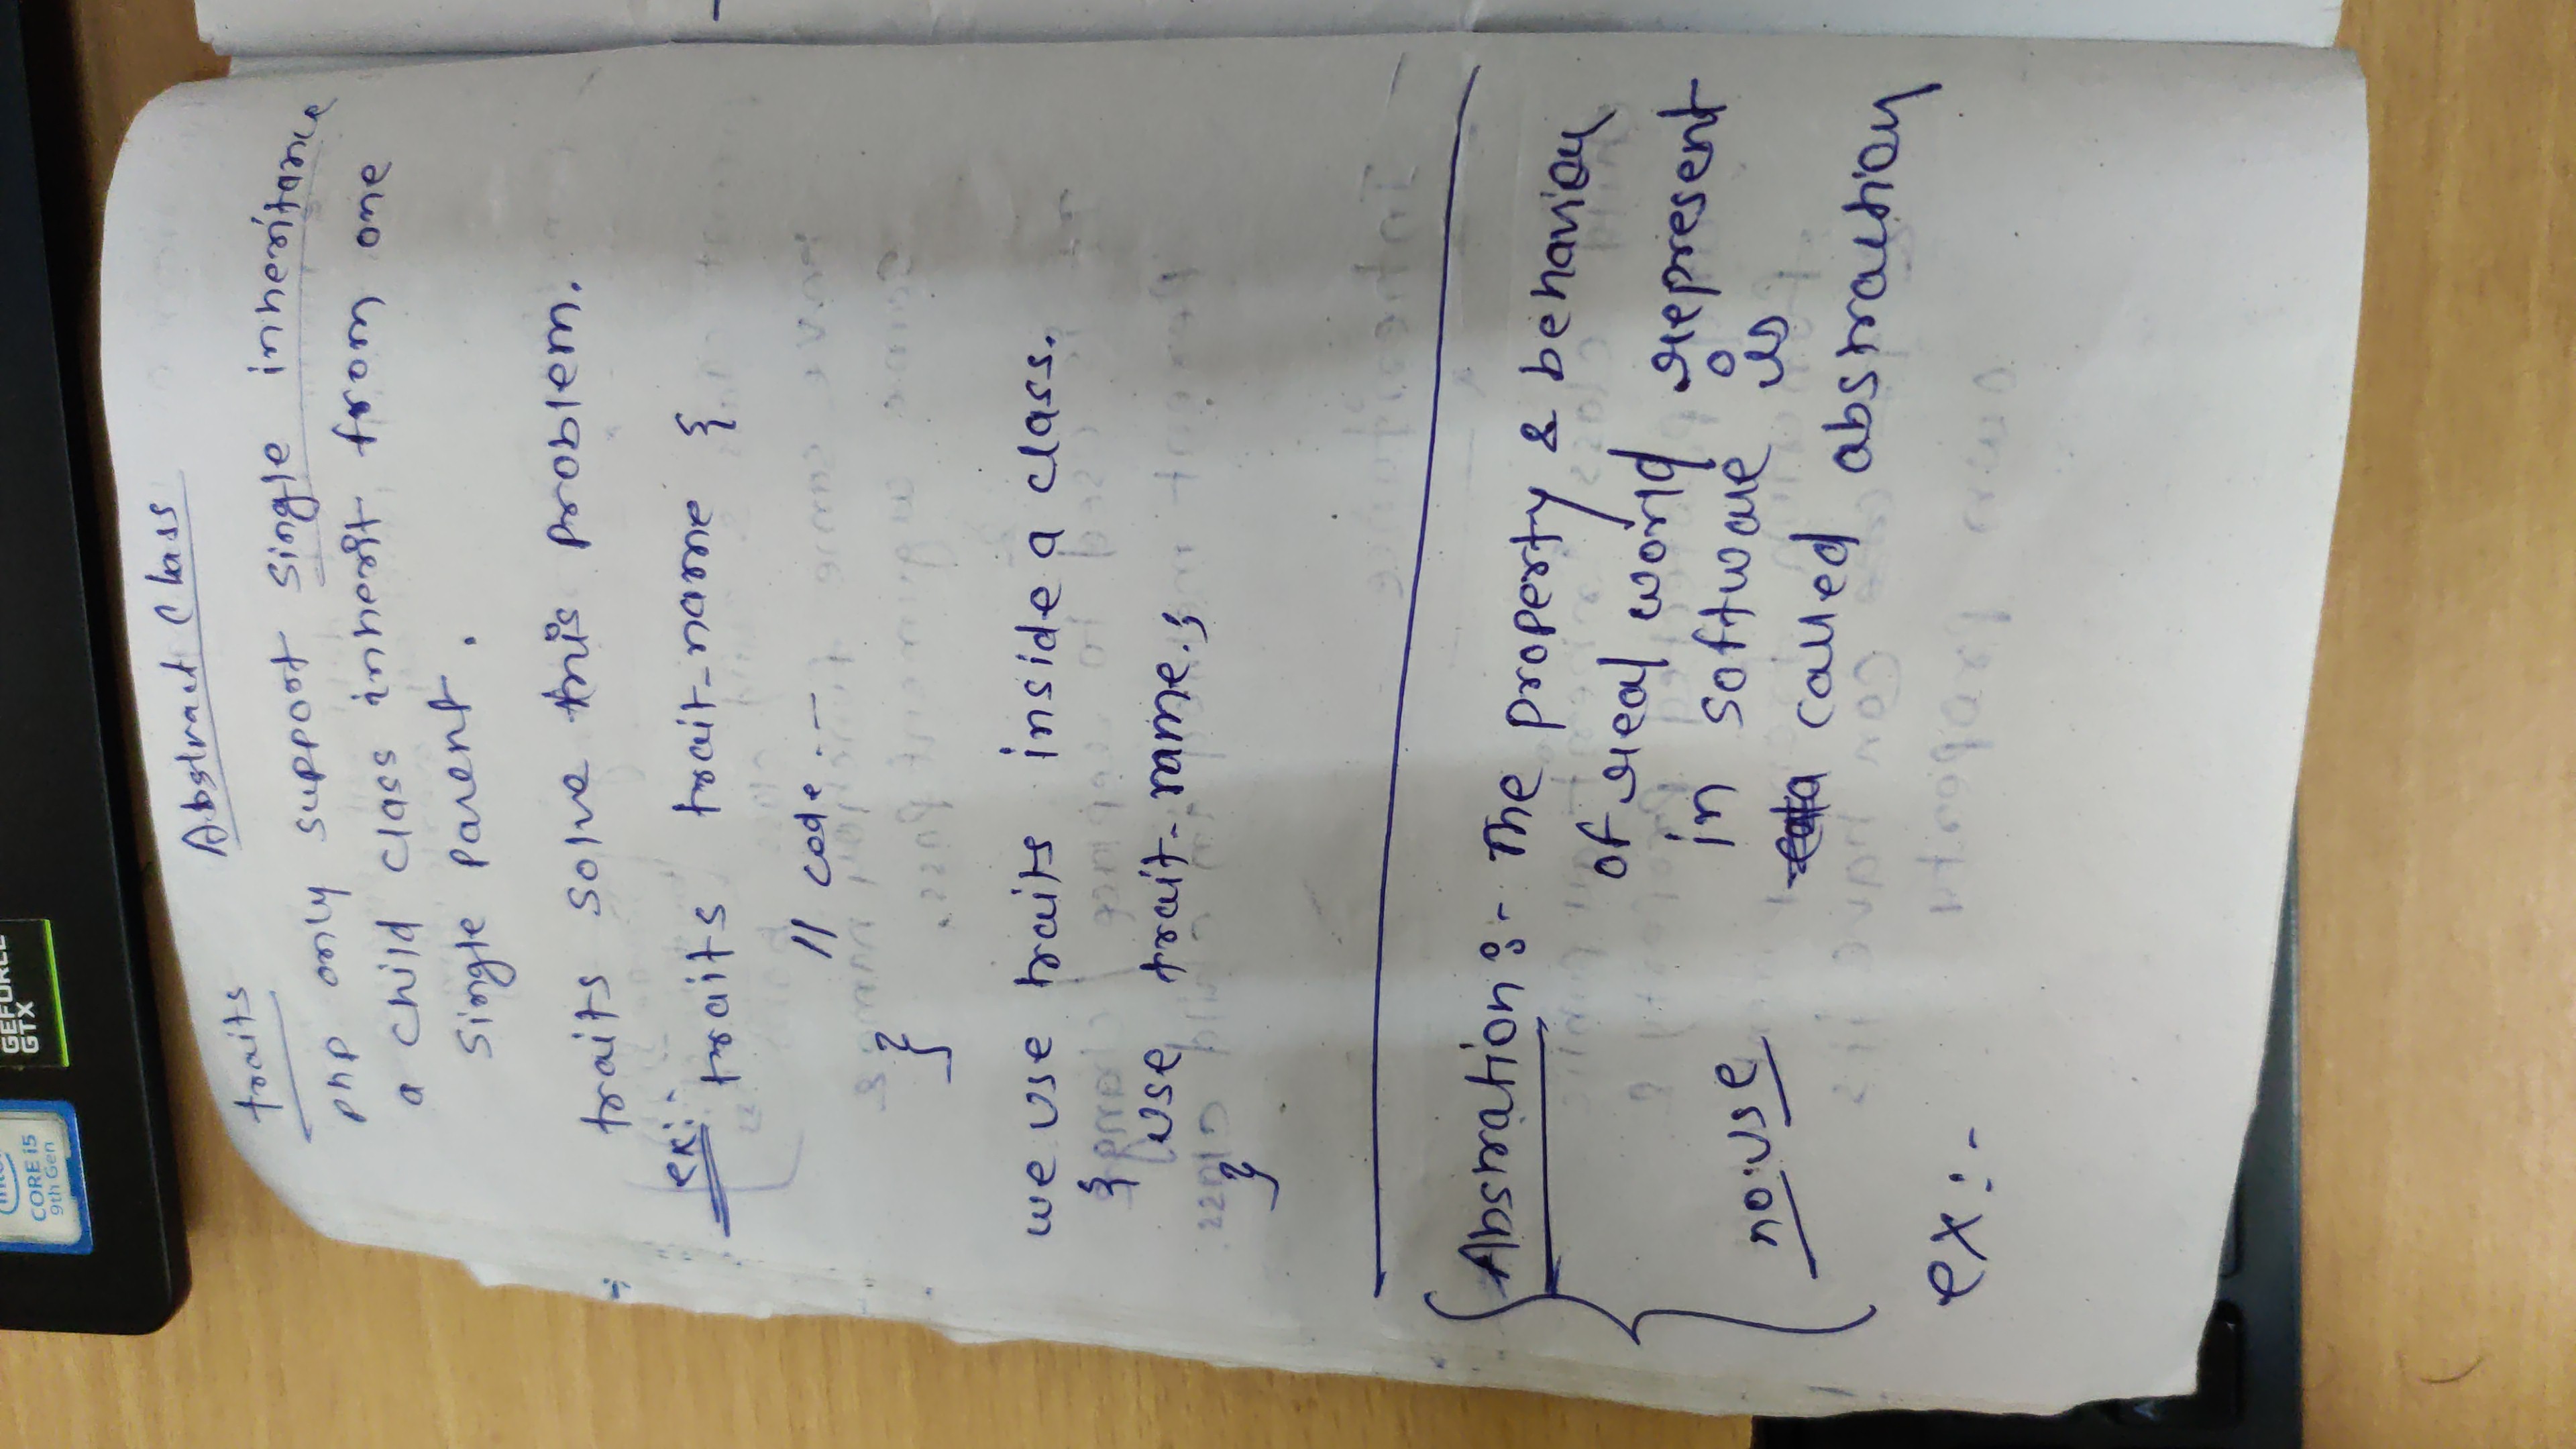 intel
CORE i5
9th Gen
GEFORCE
GTX
Abstract Class
traits
php only support single inheritance
a child class inherit from one
single parent.
traits solve this problem.
ex:-
traits trait-name {
// code . --
}
we use traits inside a class.
{
use trait-name.;
}
Abstration :- The property & behaviou
of real world represent
in software is
no:use
called abstraction
ex:-